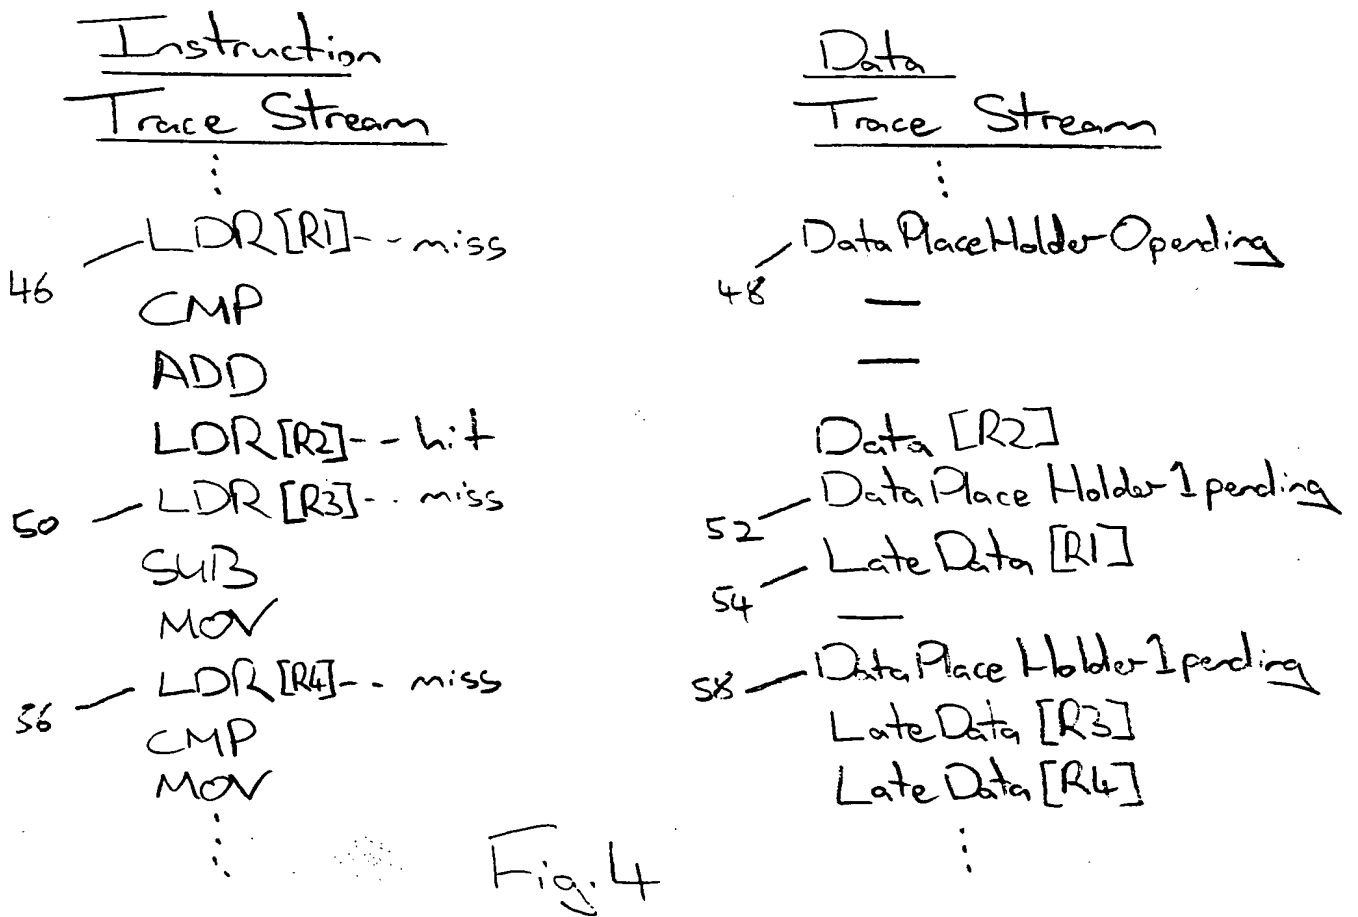 Instruction
Trace Stream
LDR[R1]--miss
46
CMP
ADD
LDR[R2]--hit
LDR[R3]--miss
50
SUB
MOV
LDR[R4]--miss
56
CMP
MOV
Data
Trace Stream
Data PlaceHolder-0pending
48
—
—
Data [R2]
Data Place Holder-1pending
52
Late Data [R1]
54
—
Data Place Holder-1pending
58
Late Data [R3]
Late Data [R4]
Fig. 4